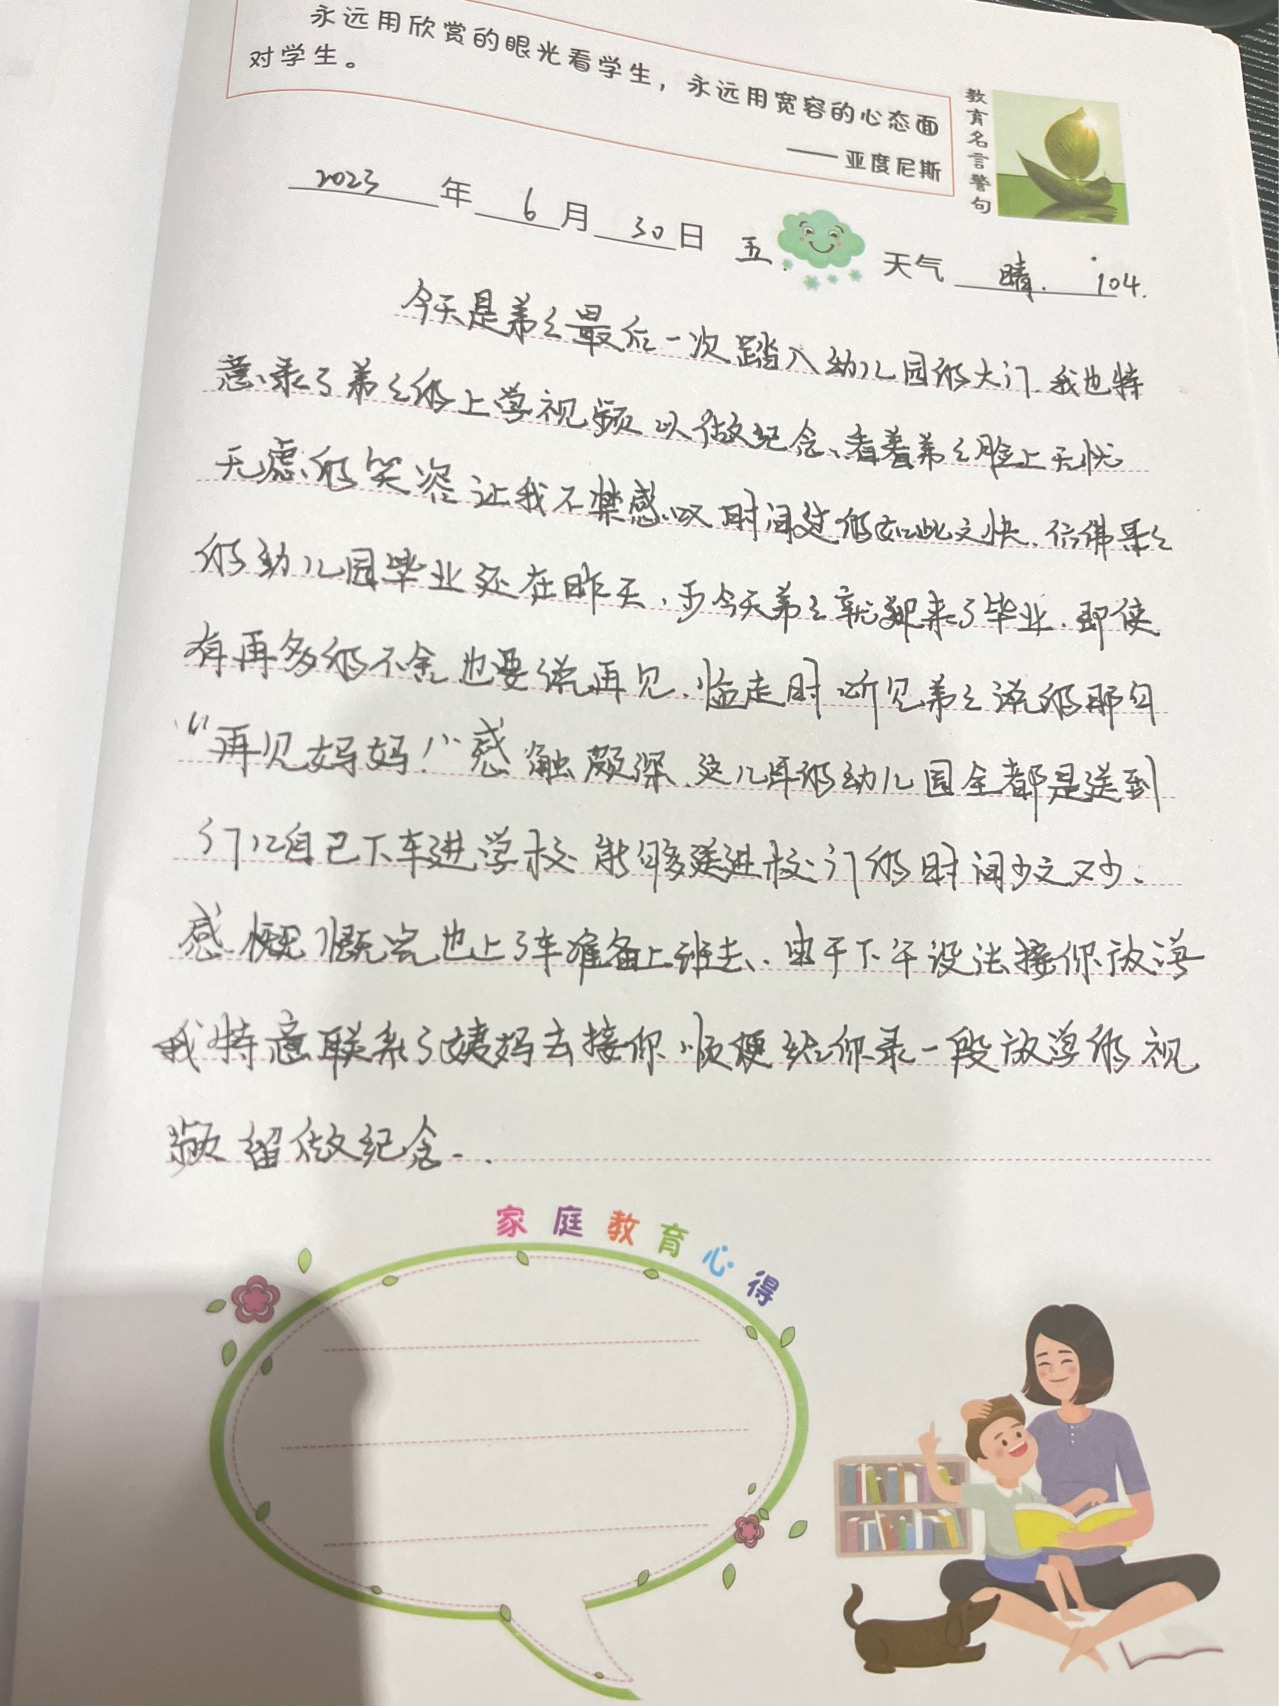 永远用欣赏的眼光看学生，永远用宽容的心态面
对学生。
——亚度尼斯
教育名言警句
2023年6月30日 五. 天气 晴. 104.
今天是弟弟最后一次踏入幼儿园的大门.我也特
意录了弟弟的上学视频以做纪念、看着弟弟脸上无忧
无虑的笑容让我不禁感叹时间过的如此之快.仿佛
的幼儿园毕业还在昨天、而今天弟弟就迎来了毕业.即使
有再多的不舍也要说再见.临走时听见弟弟说的那句
“再见妈妈！”感触颇深.这几年的幼儿园全都是送到
门口自己下车进学校能够送进校门的时间少之又少、
感慨感慨完也上了车准备上班去、由于下午没法接你放学
我特意联系了姨妈去接你顺便给你录一段放学的视
频留做纪念..
家庭教育心得